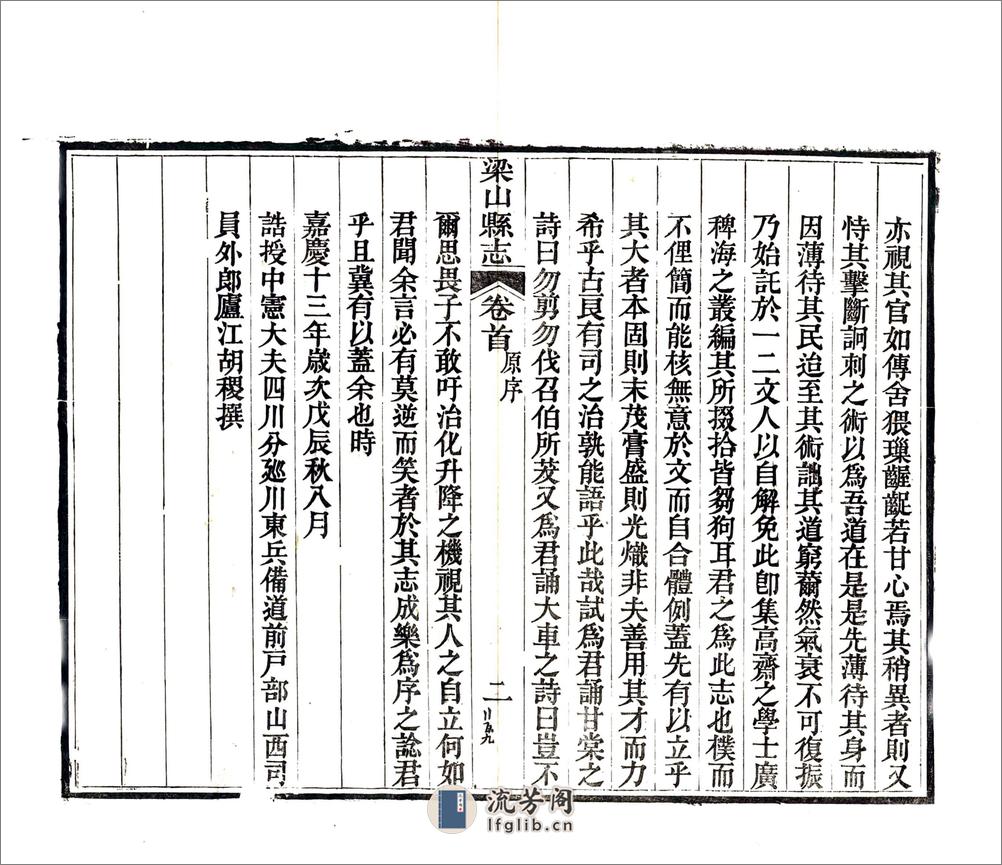 亦視其官如傳舍猥璅齷齪若甘心焉其稍異者則又
恃其擊斷詗刺之術以爲吾道在是是先薄待其身而
因薄待其民迨至其術詘其道窮薾然氣衰不可復振
乃始託於一二文人以自解免此卽集高齋之學士廣
稗海之叢編其所掇拾皆芻狗耳君之爲此志也樸而
不俚簡而能核無意於文而自合體例蓋先有以立乎
其大者本固則末茂膏盛則光熾非夫善用其才而力
希乎古良有司之治孰能語乎此哉試爲君誦甘棠之
詩曰勿剪勿伐召伯所茇又爲君誦大車之詩曰豈不
梁山縣志
卷首
原序
二
川五九
爾思畏子不敢吁治化升降之機視其人之自立何如
君聞余言必有莫逆而笑者於其志成樂爲序之諗君
乎且冀有以蓋余也時
嘉慶十三年歲次戊辰秋八月
誥授中憲大夫四川分廵川東兵備道前戸部山西司
員外郎廬江胡稷撰
流芳阁
lfglib.cn